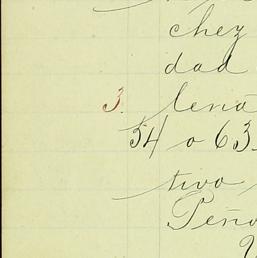 chez
dad
3. lena
54 o 63.
tivo
Peño